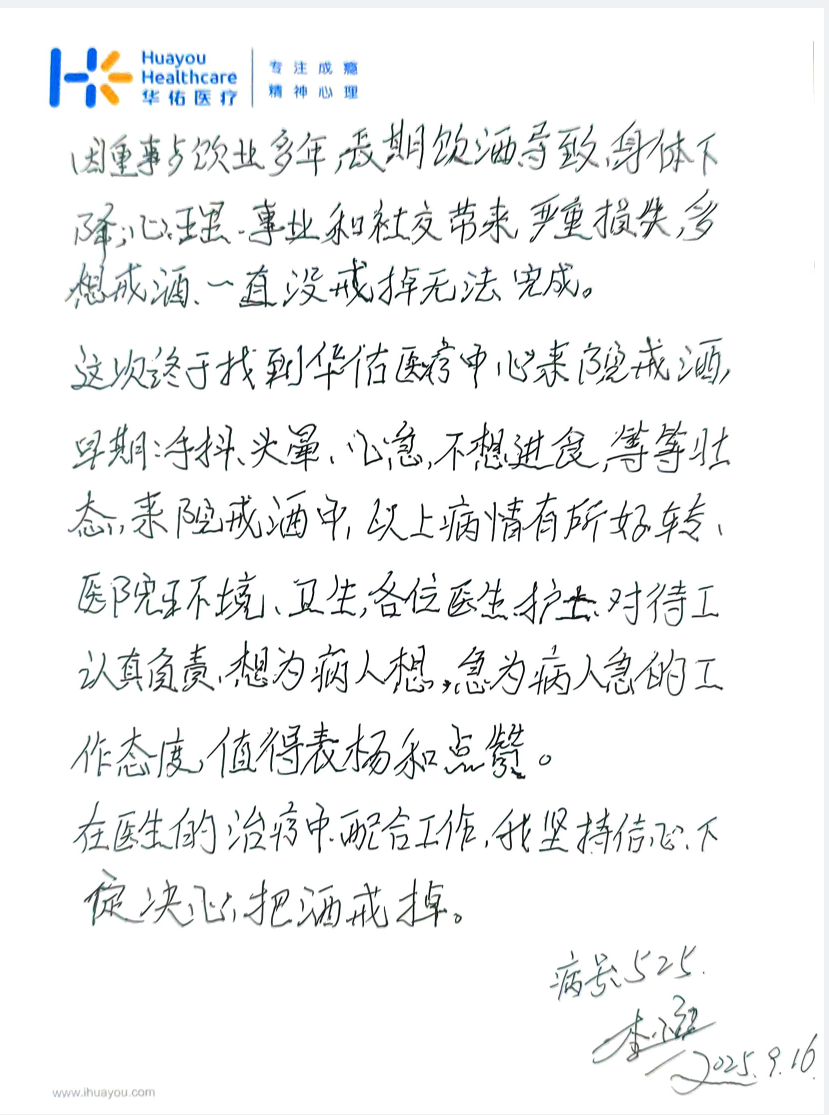 Huayou
Healthcare
华佑医疗
专注成瘾
精神心理
因重事与饮业多年,长期饮酒导致,身体下
降,心理、事业和社交带来,严重损失,多
想戒酒、一直没戒掉无法完成。
这次终于找到华佑医疗中心来院戒酒,
早期:手抖、头晕、心急,不想进食,等等壮
态,来院戒酒中,以上病情有所好转、
医院环境、卫生,各位医生护士、对待工
认真负责,想为病人想,急为病人急的工
作态度,值得表杨和点赞。
在医生的治疗中、配合工作,我坚持信心、下
定决心,把酒戒掉。
病号:525.
2025.9.16
www.ihuayou.com